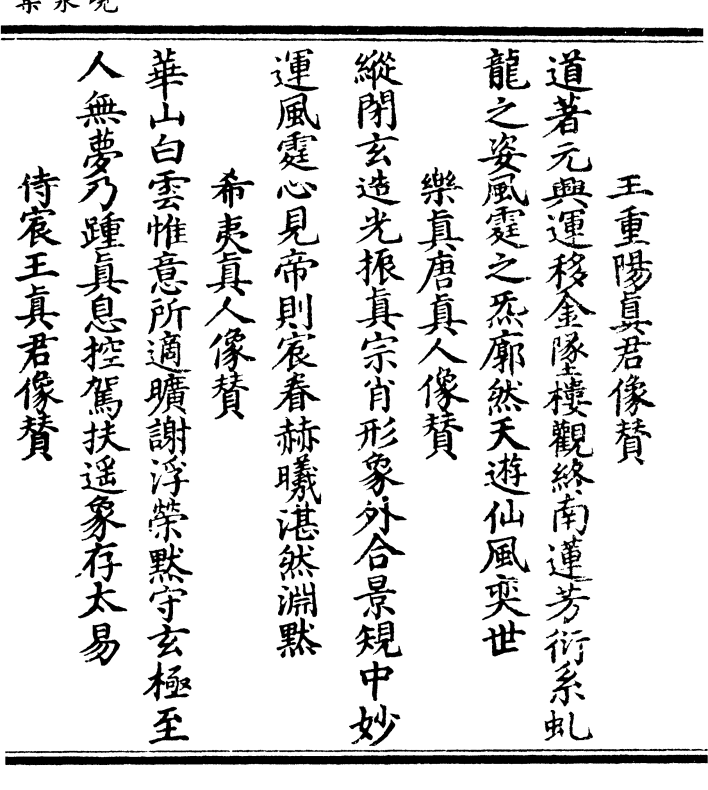 王重陽眞君像賛
道著元興運移金墜樓觀終南蓮芳衍系虬
龍之姿風霆之炁廓然天遊仙風奕世
樂眞唐眞人像賛
縱閉玄造光振眞宗肖形象外合景規中妙
運風霆心見帝則宸眷赫曦湛然淵默
希夷眞人像賛
華山白雲惟意所適曠謝浮榮默守玄極至
人無夢乃踵眞息控駕扶遥象存太易
侍宸王眞君像賛